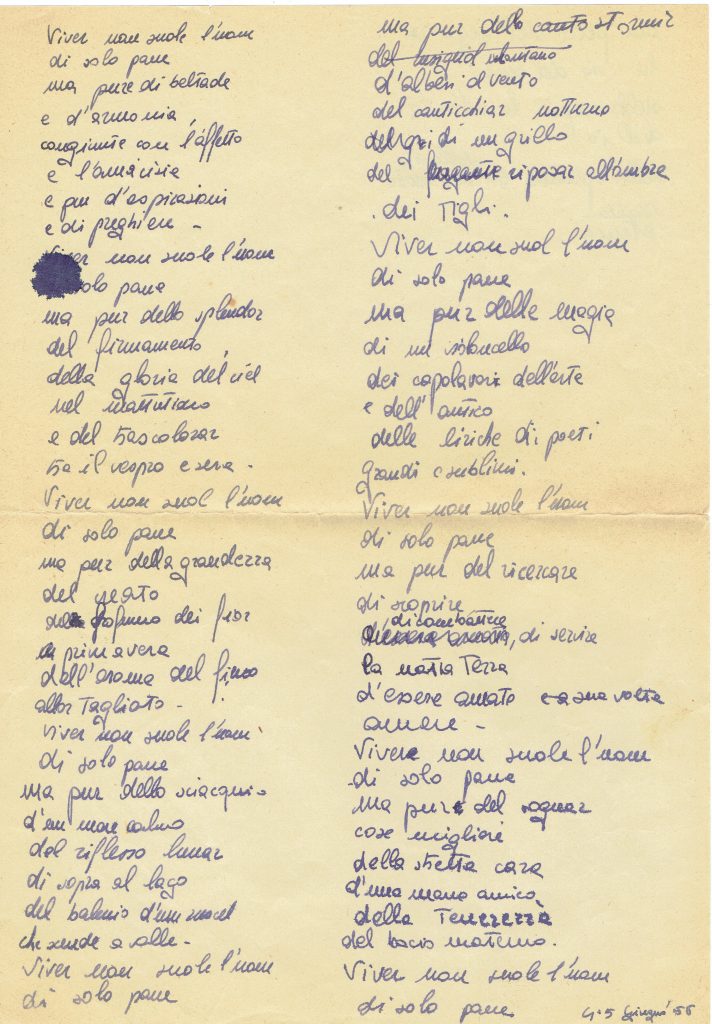 Viver non suole l'uom
di solo pane
ma pure di beltade
e d'armonia,
congiunte con l'affetto
e l'amicizia
e pur d'aspirazioni
e di preghiere -
Viver non suole l'uom
solo pane
ma pur dello splendor
del firmamento,
della gloria del ciel
nel mattutino
e del trascolorar
tra il vespro e sera -
Viver non suol l'uom
di solo pane
ma pur della grandezza
del creato
profumo dei fior
primavera
dell'aroma del fieno
allor tagliato -
Viver non suole l'uom
di solo pane
ma pur dello sciacquio
d'un mare calmo
del riflesso lunar
di sopra al lago
del balenio d'un ruscel
che scende a valle -
Viver non suole l'uom
di solo pane
ma pur dello canto stormir
del usignol lontano
d'alberi al vento
del canticchiar notturno
del gridi un grillo
del riposar all'ombra
dei Tigli.
Viver non suol l'uom
di solo pane
ma pur della magia
di un violoncello
dei capolavori dell'arte
e dell'antico
delle liriche di poeti
grandi e sublimi.
Viver non suole l'uom
di solo pane
ma pur del ricercare
di scoprire
di combattere
, di servire
la nostra Terra
d'essere amato e a sua volta
amare -
Vivere non suole l'uom
di solo pane
ma pure del sognar
cose migliori
della stretta cara
d'una mano amica,
della Tenerezza
del bacio materno.
Viver non suole l'uom
di solo pane
4-5 Giugno '56